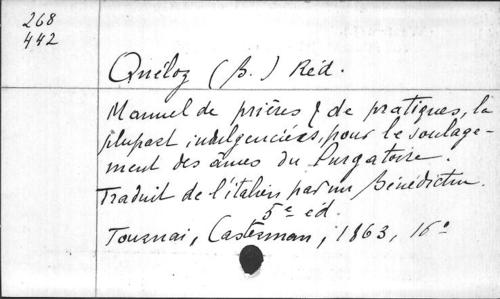 268
442
Quéloz (B.) Réd.
Manuel de prières & de pratiques, la
plupart indulgenciées, pour le soulage-
ment des âmes du Purgatoire.
Traduit de l'italien par un Bénédictin.
5e éd.
Tournai, Casterman, 1863, 16°